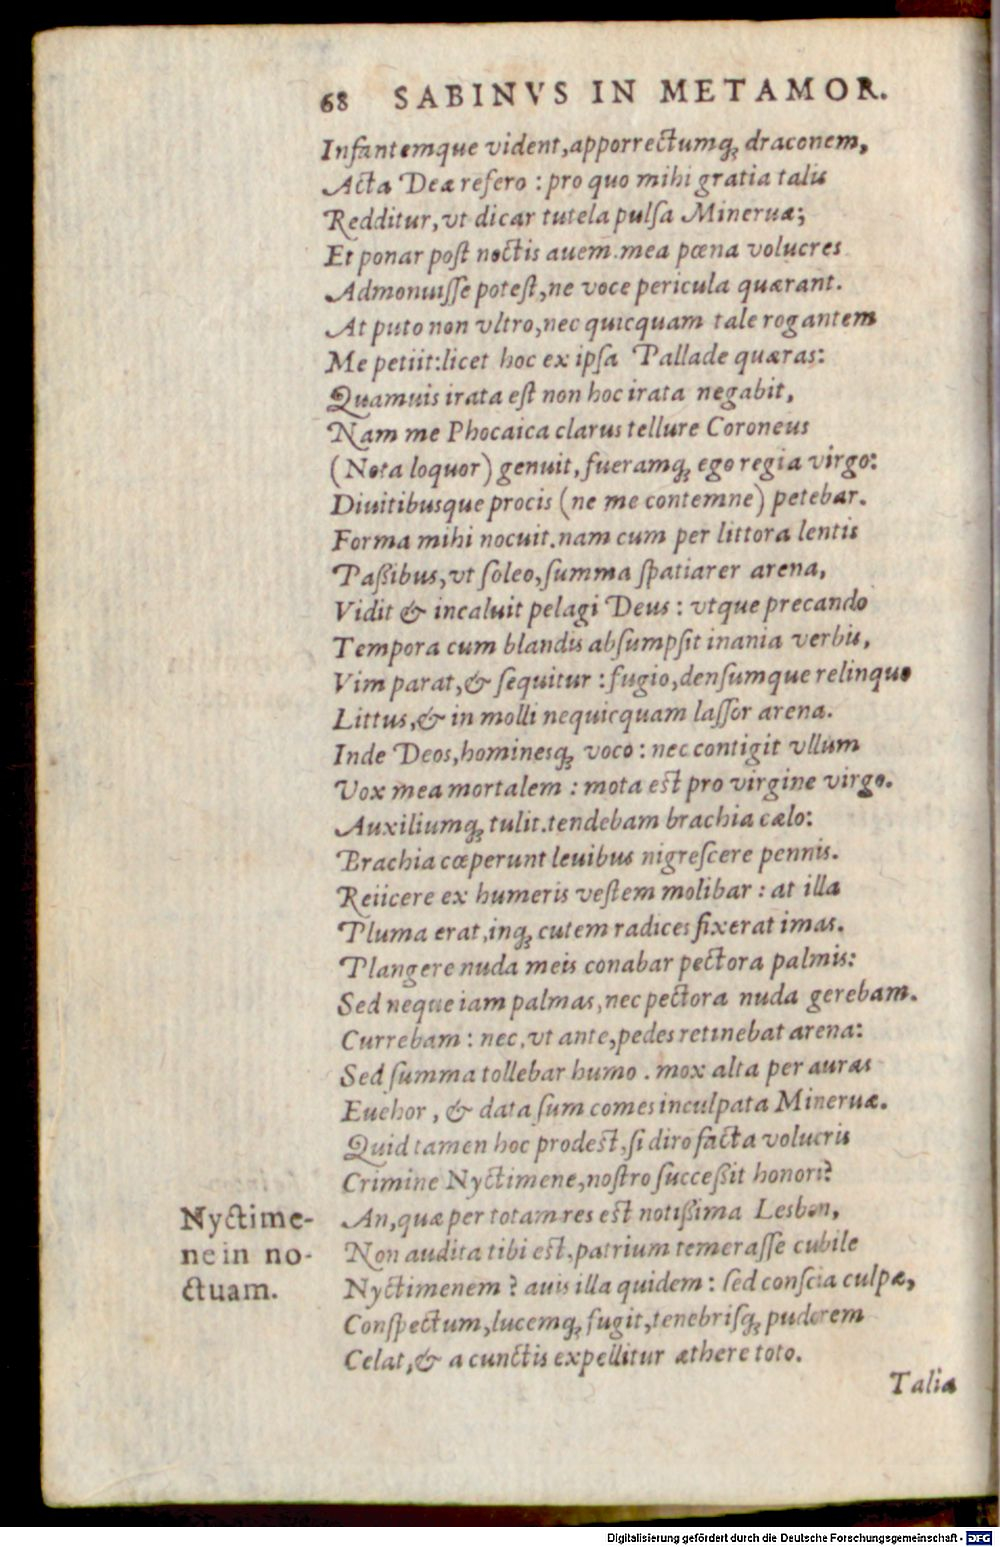 68 SABINVS IN METAMOR.
Infantemque vident,apporrectumq́; draconem,
Acta Deæ refero : pro quo mihi gratia talis
Redditur, vt dicar tutela pulſa Mineruæ;
Et ponar poſt noctis auem.mea pœna volucres
Admonuiſſe poteſt,ne voce pericula quærant.
At puto non vltro,nec quicquam tale rogantem
Me petiit:licet hoc ex ipſa Pallade quæras:
Quamuis irata eſt non hoc irata negabit,
Nam me Phocaica clarus tellure Coroneus
(Nota loquor) genuit, fueramq́; ego regia virgo:
Diuitibusque procis (ne me contemne) petebar.
Forma mihi nocuit.nam cum per littora lentis
Paßibus,vt ſoleo,ſumma ſpatiarer arena,
Vidit & incaluit pelagi Deus : vtque precando
Tempora cum blandis abſumpſit inania verbis,
Vim parat,& ſequitur : fugio,denſumque relinquo
Littus,& in molli nequicquam laſſor arena.
Inde Deos,hominesq́; voco : nec contigit vllum
Vox mea mortalem : mota eſt pro virgine virgo.
Auxiliumq́; tulit.tendebam brachia cælo:
Brachia cœperunt leuibus nigreſcere pennis.
Reiicere ex humeris veſtem molibar : at illa
Pluma erat,inq́; cutem radices fixerat imas.
Plangere nuda meis conabar pectora palmis:
Sed neque iam palmas,nec pectora nuda gerebam.
Currebam : nec,vt ante,pedes retinebat arena:
Sed ſumma tollebar humo . mox alta per auras
Euehor , & data ſum comes inculpata Mineruæ.
Quid tamen hoc prodeſt,ſi diro facta volucris
Crimine Nyctimene,noſtro ſucceßit honori?
An,quæ per totam res eſt notißima Lesbon,
Non audita tibi eſt,patrium temeraſſe cubile
Nyctimenem ? auis illa quidem : ſed conſcia culpæ,
Conſpectum,lucemq́; fugit,tenebriſq́; pudorem
Celat,& a cunctis expellitur æthere toto.
Nyctime-
ne in no-
ctuam.
Talia
Digitalisierung gefördert durch die Deutsche Forschungsgemeinschaft - DFG